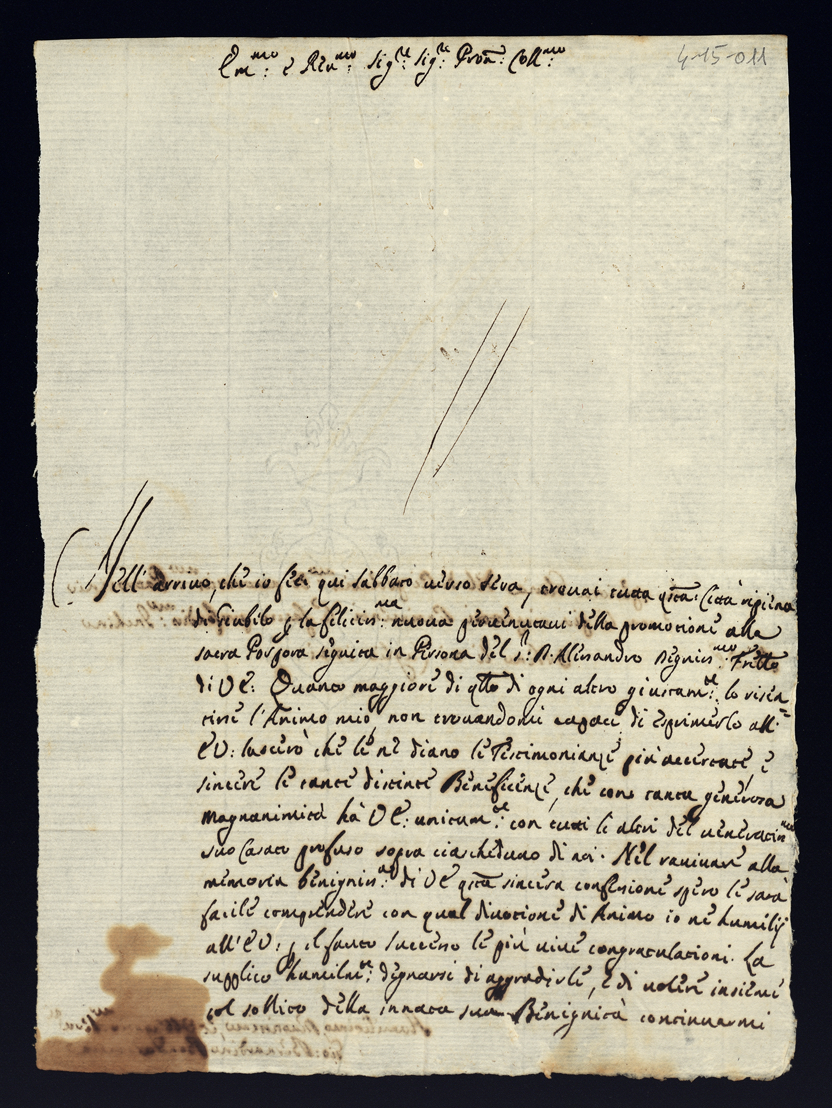 4-15-011
Em.mo: e Rev.mo: Sig.re: Sig.re: Pron: Coll.mo:
Nell'arrivo, che io feci qui Sabbato verso sera, trovai tutta qsta Città ripiena
di Giubilo p la feliciss.ma: nuova pervenutavi della promotione alla
sacra Porpora seguita in Persona del S.r: D. Alessandro degniss.mo: Frello
di VE: Quanto maggiore di qllo di ogni altro giustam.te: lo risen=
tisse l'Animo mio, non trovandomi capace di esprimerlo all'
EV: lascerò che le ne diano le Testimonianze più accertate, e
sincere le tante distinte Beneficenze, che con tanta generosa
magnanimità hà VE: unitam.te: con tutti li altri del veneratiss.mo
suo Casato profuso sopra ciascheduno di noi. Nel ravivare alla
memoria benigniss.ma: di VE qsta sincera confessione spero le sarà
facile comprendere con qual divotione di Animo io ne humilij
all'EV: p il fausto successo le più vive congratulationi. La
supplico humilm.te: degnarsi di aggradirle, e di volere insieme
col solito della innata sua Benignità continuarmi